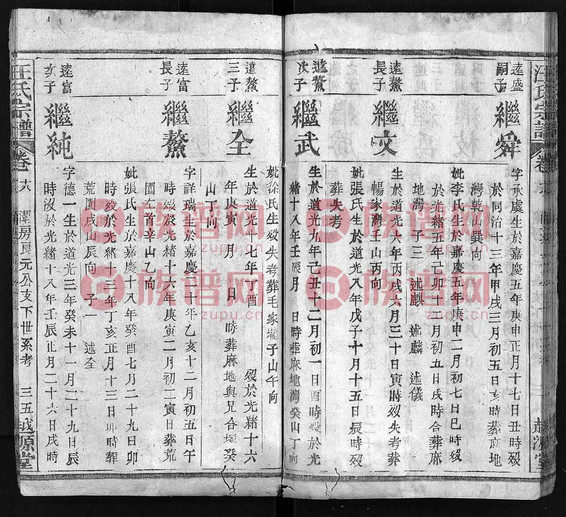 遠盛
嗣子
繼舜
字承虞生於嘉慶五年庚申正月十七日丑時歿
於同治十三年甲戌三月初五日亥時葬麻地
灣乾山巽向
妣李氏生於嘉慶五年庚申二月初七日巳時歿
於光緒五年己卯十二月初五日戌時合葬麻
地灣 子三 述麒 述麟 述儀
遠鰲
長子
繼文
生於道光六年丙戌六月三十日寅時歿失考葬
楊家灣壬山丙向
妣張氏生於道光八年戊子十月十五日辰時歿
葬失考
遠鰲
次子
繼武
生於道光九年己丑十二月初一日酉時歿於光
緒十八年壬辰月 日時葬麻地灣癸山丁向
遠鰲
三子
繼全
生於道光十七年 月 日 歿於光緒十六
年庚寅 月 日 時葬麻地與兄合墳癸
山丁向
妣徐氏生歿失考葬毛家壠子山午向
遠富
長子
繼鰲
字詳瑞生於嘉慶二十年乙亥十二月初五日午
時歿於光緒十六年庚寅二月初二寅日葬荒
園左首辛山乙向
妣張氏生於嘉慶十八年癸酉二月二十九日卯
時歿於光緒十一年丁亥正月十三日卯時葬
荒園戌山辰向 子一 述全
遠富
次子
繼純
字德一生於道光三年癸未十一月二十九日辰
時歿於光緒十八年壬辰正月二十六日戌時
汪氏宗譜
卷六
元公支下世系考
三五
越源堂
族谱网
www.zupu.cn